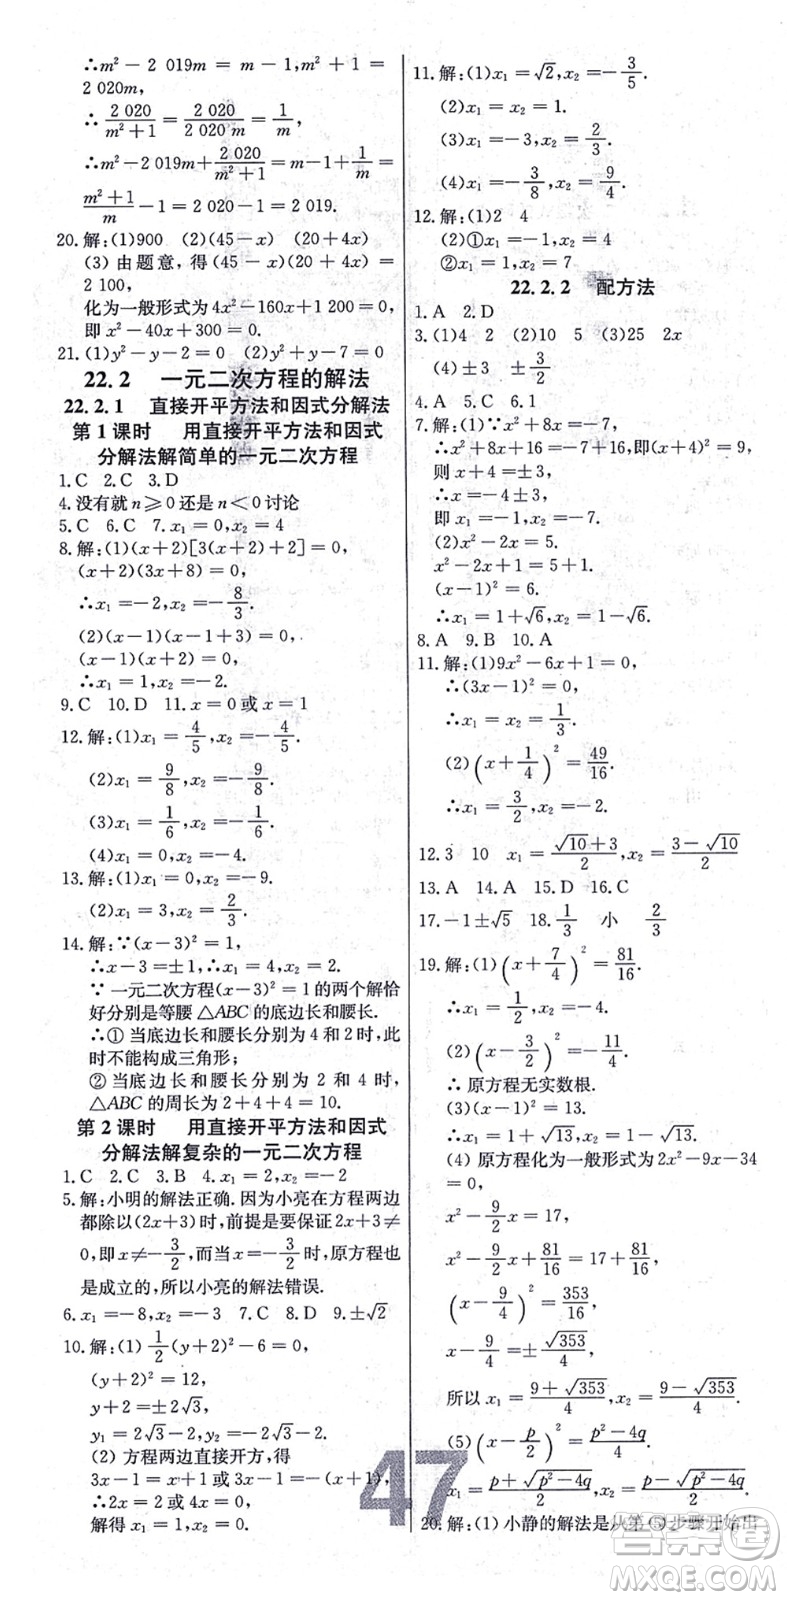 ∴m²－2 019m＝m－1,m²＋1＝
2 020m,
∴2 020/(m²＋1)＝2 020/(2 020m)＝1/m,
∴m²－2 019m＋2 020/(m²＋1)＝m－1＋1/m＝
(m²＋1)/m－1＝2 020－1＝2 019.
20.解:(1)900 (2)(45－x) (20＋4x)
(3)由题意,得(45－x)(20＋4x)＝
2 100,
化为一般形式为4x²－160x＋1 200＝0,
即x²－40x＋300＝0.
21.(1)y²－y－2＝0 (2)y²＋y－7＝0
22.2 一元二次方程的解法
22.2.1 直接开平方法和因式分解法
第1课时 用直接开平方法和因式
分解法解简单的一元二次方程
1.C 2.C 3.D
4.没有就n≥0还是n＜0讨论
5.C 6.C 7.x₁＝0,x₂＝4
8.解:(1)(x＋2)[3(x＋2)＋2]＝0,
(x＋2)(3x＋8)＝0,
∴x₁＝－2,x₂＝－8/3.
(2)(x－1)(x－1＋3)＝0,
(x－1)(x＋2)＝0,
∴x₁＝1,x₂＝－2.
9.C 10.D 11.x＝0或x＝1
12.解:(1)x₁＝4/5,x₂＝－4/5.
(2)x₁＝9/8,x₂＝－9/8.
(3)x₁＝1/6,x₂＝－1/6.
(4)x₁＝0,x₂＝－4.
13.解:(1)x₁＝0,x₂＝－9.
(2)x₁＝3,x₂＝2/3.
14.解:∵(x－3)²＝1,
∴x－3＝±1,∴x₁＝4,x₂＝2.
∵一元二次方程(x－3)²＝1的两个解恰
好分别是等腰△ABC的底边长和腰长.
∴①当底边长和腰长分别为4和2时,此
时不能构成三角形;
②当底边长和腰长分别为2和4时,
△ABC的周长为2＋4＋4＝10.
第2课时 用直接开平方法和因式
分解法解复杂的一元二次方程
1.C 2.C 3.B 4.x₁＝0,x₂＝－2
5.解:小明的解法正确.因为小亮在方程两边
都除以(2x＋3)时,前提是要保证2x＋3≠
0,即x≠－3/2,而当x＝－3/2时,原方程也
是成立的,所以小亮的解法错误.
6.x₁＝－8,x₂＝－3 7.C 8.D 9.±√2
10.解:(1)1/2(y＋2)²－6＝0,
(y＋2)²＝12,
y＋2＝±2√3,
y₁＝2√3－2,y₂＝－2√3－2.
(2)方程两边直接开方,得
3x－1＝x＋1或3x－1＝－(x＋1),
∴2x＝2或4x＝0,
解得x₁＝1,x₂＝0.
11.解:(1)x₁＝√2,x₂＝－3/5.
(2)x₁＝x₂＝1.
(3)x₁＝－3,x₂＝2/3.
(4)x₁＝－3/8,x₂＝9/4.
12.解:(1)2 4
(2)①x₁＝2,x₂＝4
②x₁＝1,x₂＝7
22.2.2 配方法
1.A 2.D
3.(1)4 2 (2)10 5 (3)25 2x
(4)±3 ±3/2
4.A 5.C 6.A
7.解:(1)∵x²＋8x＝－7,
∴x²＋8x＋16＝－7＋16,即(x＋4)²＝9,
则x＋4＝±3,
∴x＝－4±3,
即x₁＝－1,x₂＝－7.
(2)x²－2x＝5.
x²－2x＋1＝5＋1.
(x－1)²＝6.
∴x₁＝1＋√6,x₂＝1－√6.
8.A 9.B 10.A
11.解:(1)9x²－6x＋1＝0,
∴(3x－1)²＝0,
∴x₁＝x₂＝1/3.
(2)(x＋1/4)²＝49/16.
∴x₁＝3/2,x₂＝－2.
12.3 10 x₁＝(√10＋3)/2,x₂＝(3－√10)/2
13.A 14.A 15.D 16.C
17.－1±√5 18.1/3 小 2/3
19.解:(1)(x＋7/4)²＝81/16.
∴x₁＝1/2,x₂＝－4.
(2)(x－3/2)²＝－11/4.
∴原方程无实数根.
(3)(x－1)²＝13,
∴x₁＝1＋√13,x₂＝1－√13.
(4)原方程化为一般形式为2x²－9x－34
＝0,
x²－9/2x＝17,
x²－9/2x＋81/16＝17＋81/16,
(x－9/4)²＝353/16,
x－9/4＝±√353/4,
所以x₁＝(9＋√353)/4,x₂＝(9－√353)/4.
(5)(x－p/2)²＝(p²－4q)/4.
x₁＝(p＋√(p²－4q))/2,x₂＝(p－√(p²－4q))/2.
20.解:(1)小静的解法是从第⑤步骤开始出
47
答案圈
MXQE.COM